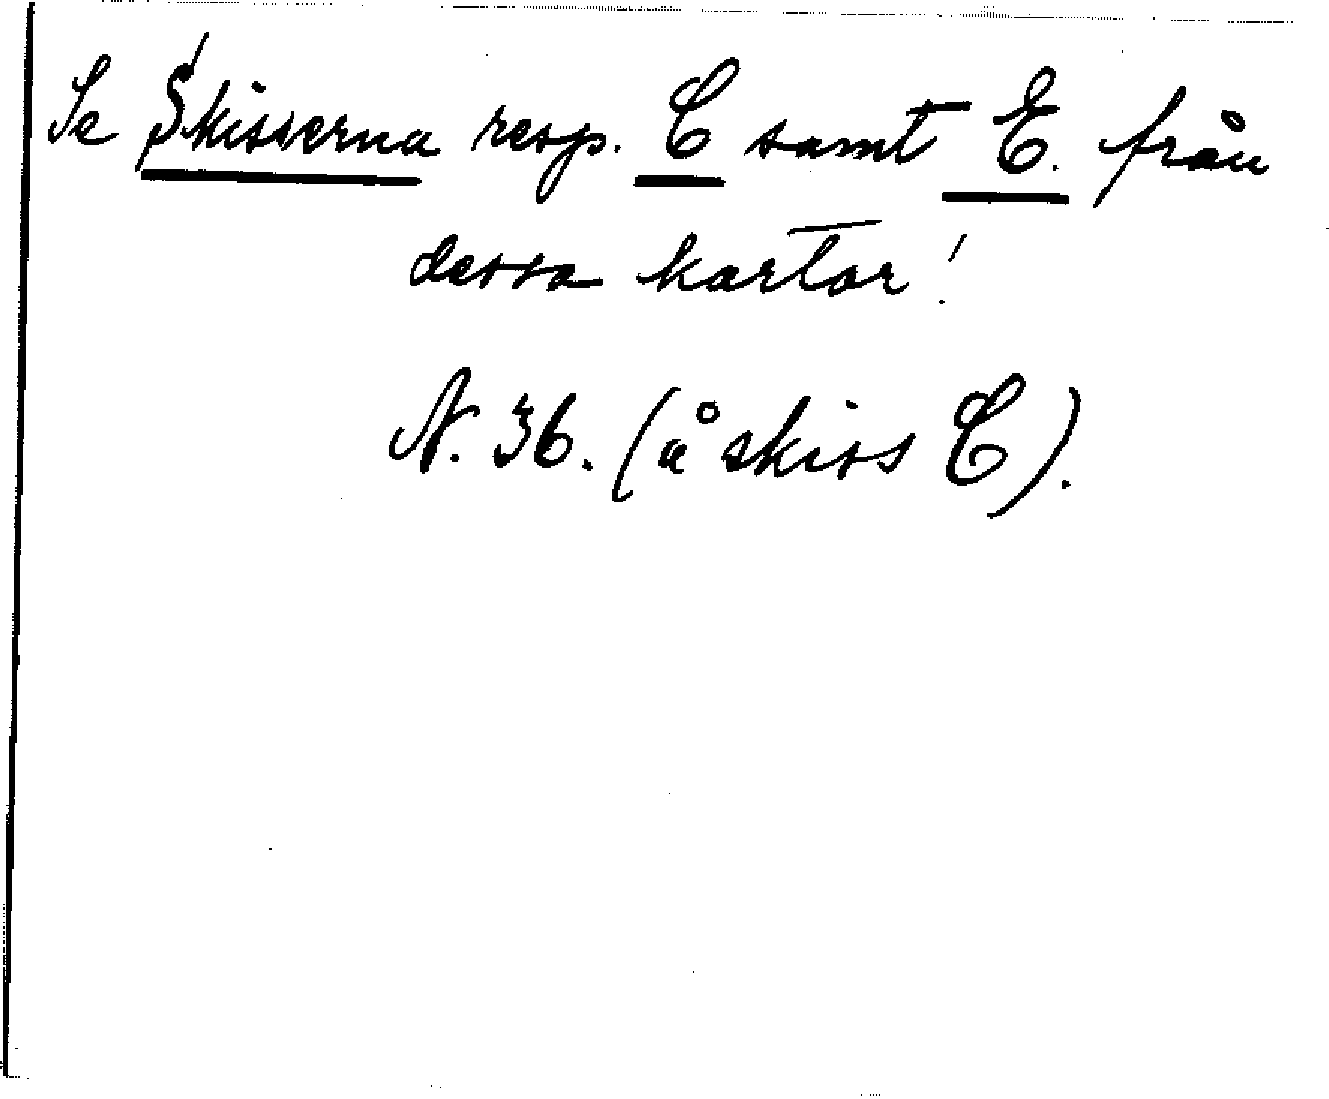 Se Skisserna resp. C samt E. från
dessa kartor!
N. 36. (å skiss C).